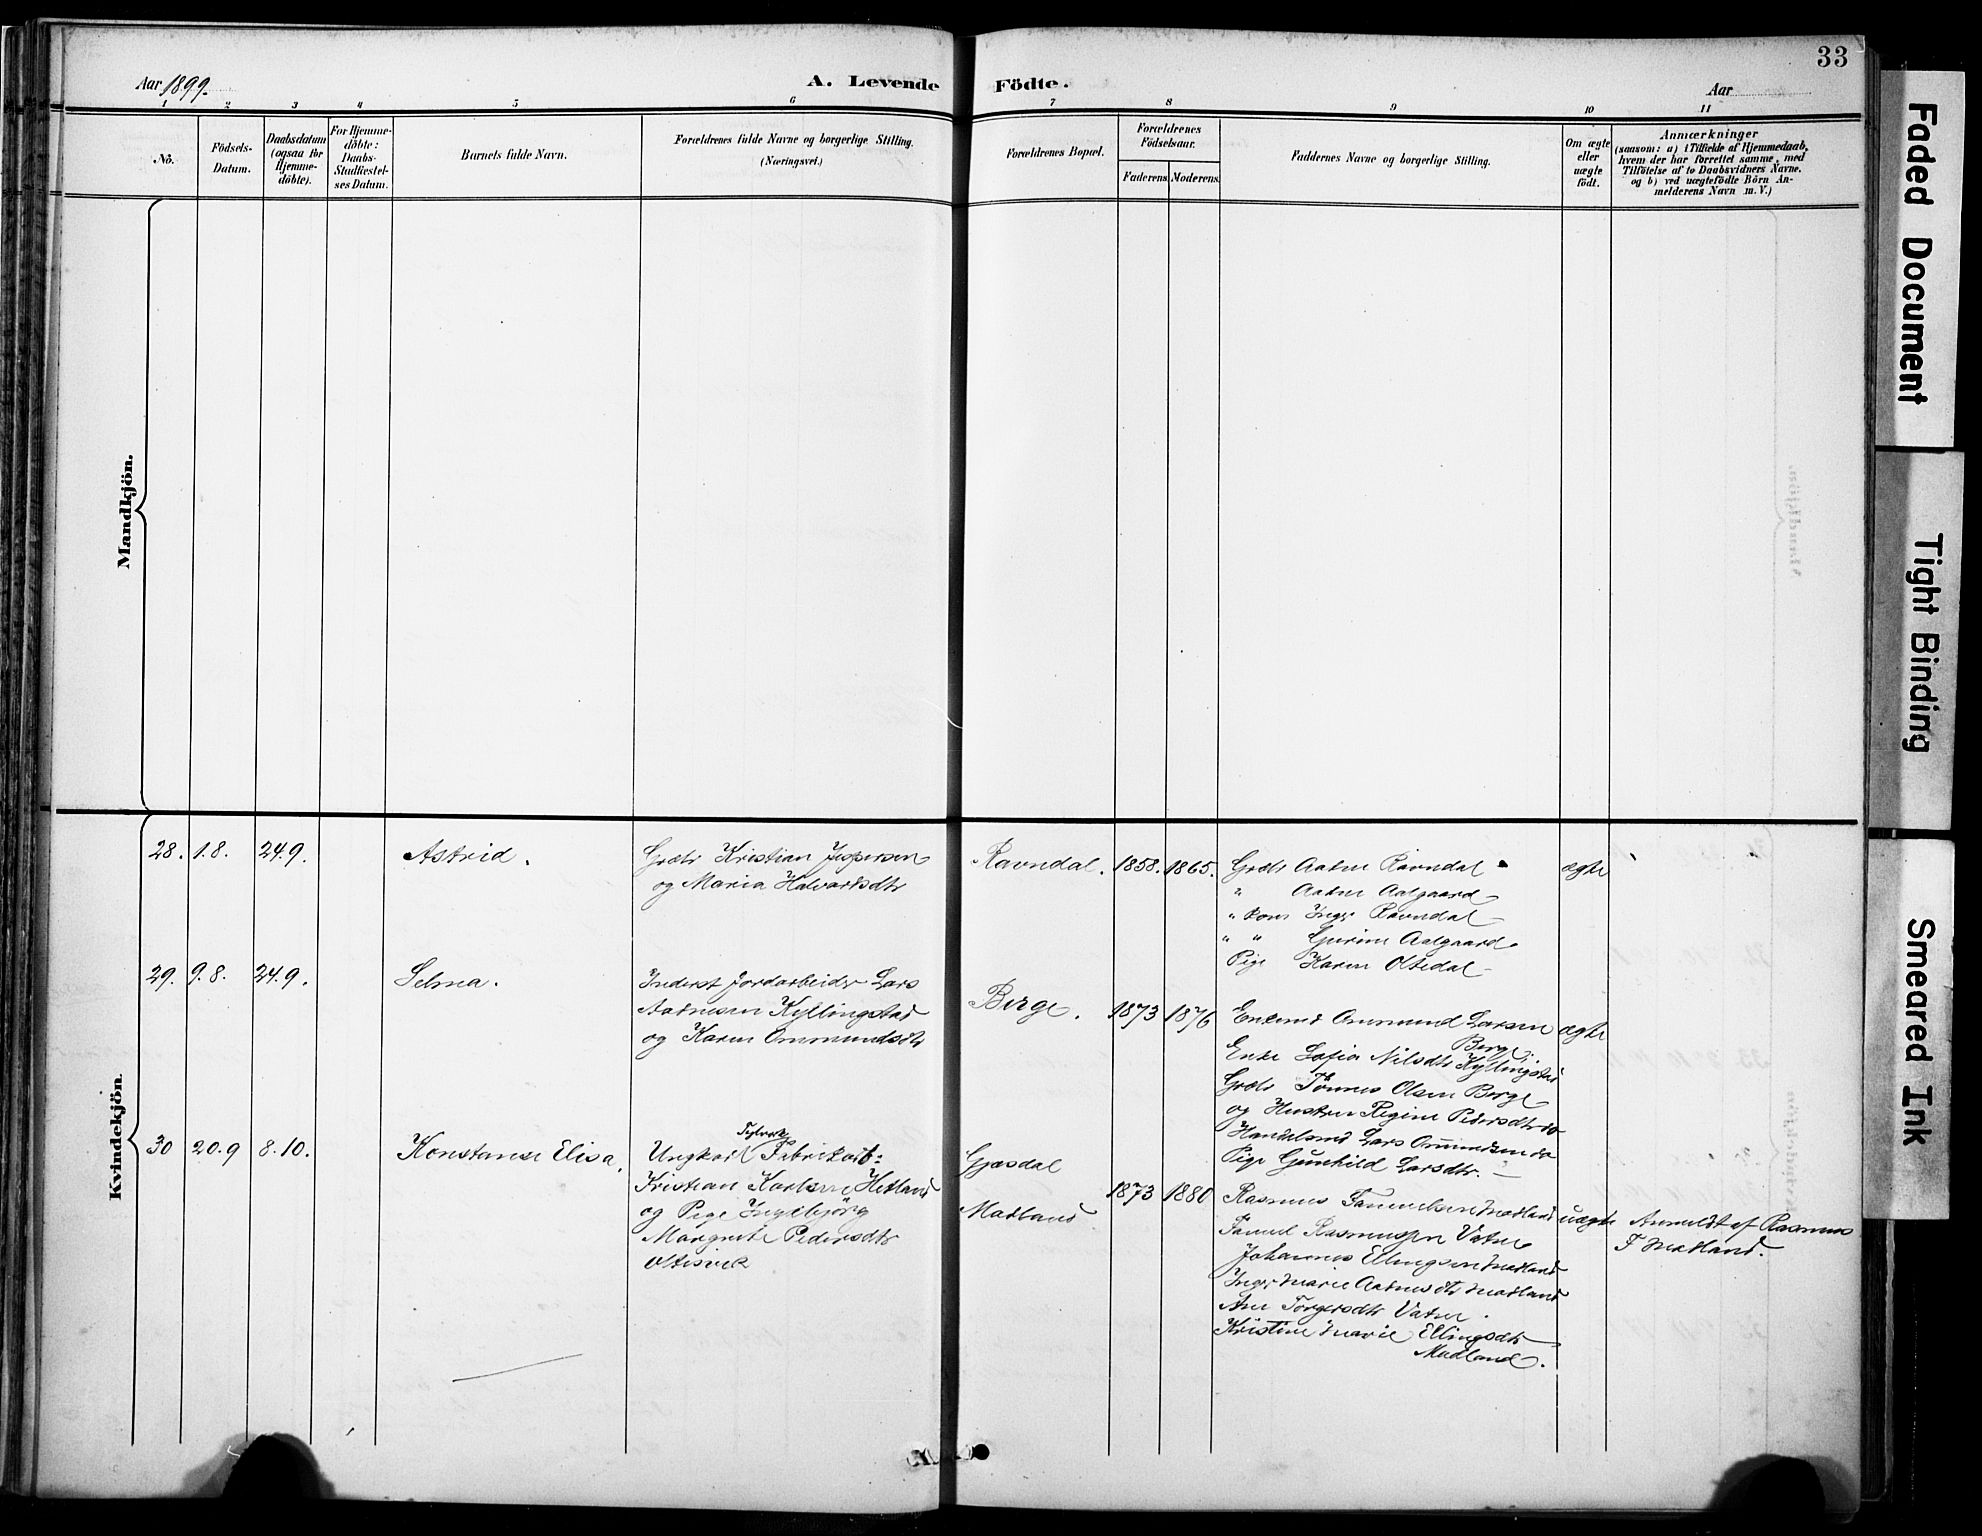 33
Aar 1899.
A. Levende Födte.
Aar
1 2 3 4 5 6 7 8 9 10 11
No.
Födsels-
Datum.
Daabsdatum
(ogsaa for
Hjemme-
döbte).
For Hjemme-
döbte:
Daabs-
Stadfæstel-
ses Datum.
Barnets fulde Navn.
Forældrenes fulde Navne og borgerlige Stilling.
(Næringsvei.)
Forældrenes Bopæl.
Forældrenes
Födselsaar.
Faderens. Moderens.
Faddernes Navne og borgerlige Stilling.
Om ægte
eller
uægte
födt.
Anmærkninger
(saasom: a) i Tilfælde af Hjemmedaab,
hvem der har forrettet samme, med
Tilföielse af to Daabsvidners Navne.
og b) ved uægtefödte Börn An-
melderens Navn m. V.)
Mandkjön.
Kvindekjön.
28. 1.8. 24.9. Astrid.
Grdbr Kristian Jespersen
og Maria Halvarsdtr
Ravndal. 1858. 1865.
Grdbr Aadne Ravndal
" Aadne Aalgaard
" kone Inger Ravndal
" " Gurine Aalgaard
Pige Karen Oltedal
ægte
29. 9.8. 24.9. Selma.
Inderst Jordarbeider Lars
Aadnesen Kyllingstad
og Karen Ommundsdtr
Berge. 1873 1876
Enkemd Ommund Larsen
Berge
Enke Sofia Nilsdtr Kyllingstad
Grdbr Tönnes Olsen Berge
og Hustru Regine Pedersdtr do
Handelsmd Lars Ommundsen do
Pige Gunhild Larsdtr.
ægte
30 20.9 8.10. Konstanse Elisa.
Ungkarl Fabrikarb:
Kristian Karlsen Hetland
og Pige Ingebjörg
Margrete Pedersdtr
Oltesvik
Gjesdal
Madland
1873 1880
Rasmus Samuelsen Madland
Samuel Rasmussen Vatne
Johannes Ellingsen Madland
Inger Marie Aadnesdtr Madland
Ane Torgersdtr Vatne.
Kristine Marie Ellingsdtr
Madland.
uægte
Anmeldt af Rasmus
S Madland.
Faded Document
Tight Binding
Smeared Ink